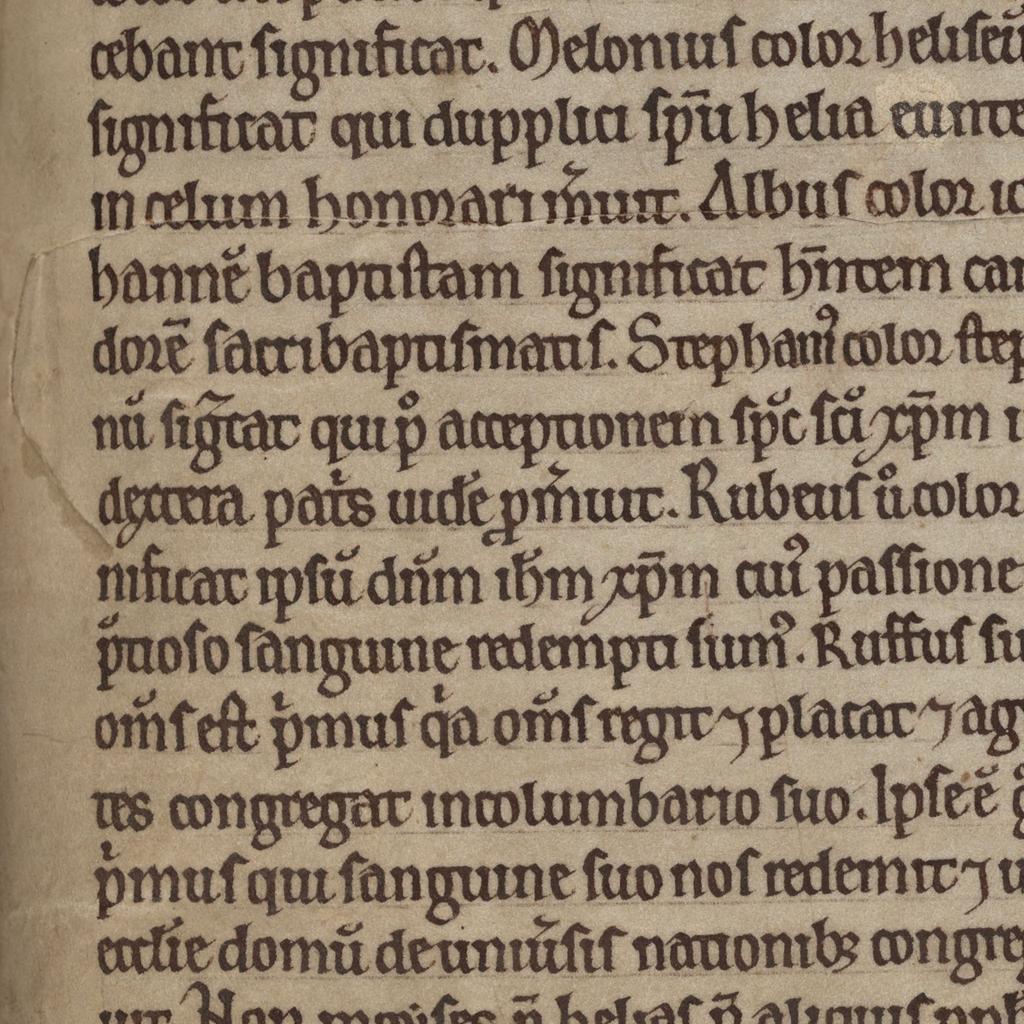 cebant significat. Melonius color heliseū
significat qui dupplici sp̄u helia eunte
in celum honorari m̃uit. Albus color io
hannē baptistam significat h̄ntem can
dorē sacri baptismatis. Stephaniꝰ color step
nū sig̃cat qui pͦ acceptionem sp̄c sci xp̄m i
dextera patͥs uidē ꝑm̃uit. Rubeus uͦ color
nificat ipsū dn̄m ih̄m xp̄m cuiꝰ passione
p̄tioso sanguine redempti sumꝰ. Ruffus su
om̄s est pͥmus qͥa om̄s regit ⁊ placat ⁊ ag
tes congregat incolumbario suo. Ipse ē
pͥmus qui sanguine suo nos redemit ⁊ u
eccl̄ie domū de uniu̾sis nationibꝫ congre
uit. Non moyses n̄ helias n̄ aliquis